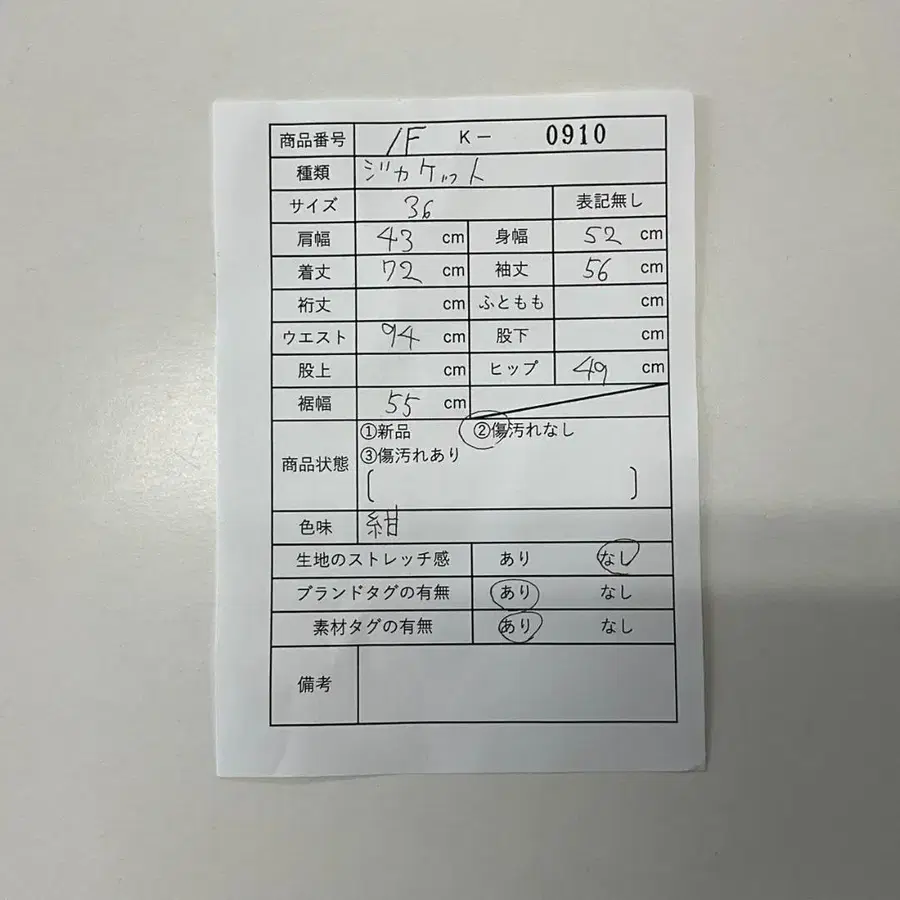 商品番号 1F K- 0910
種類 ジャケット
サイズ 36 表記無し
肩幅 43 cm 身幅 52 cm
着丈 72 cm 袖丈 56 cm
裄丈 cm ふともも cm
ウエスト 94 cm 股下 cm
股上 cm ヒップ 49 cm
裾幅 55 cm
商品状態 ①新品 ②傷汚れなし
③傷汚れあり
[ ]
色味 紺
生地のストレッチ感 あり なし
ブランドタグの有無 あり なし
素材タグの有無 あり なし
備考